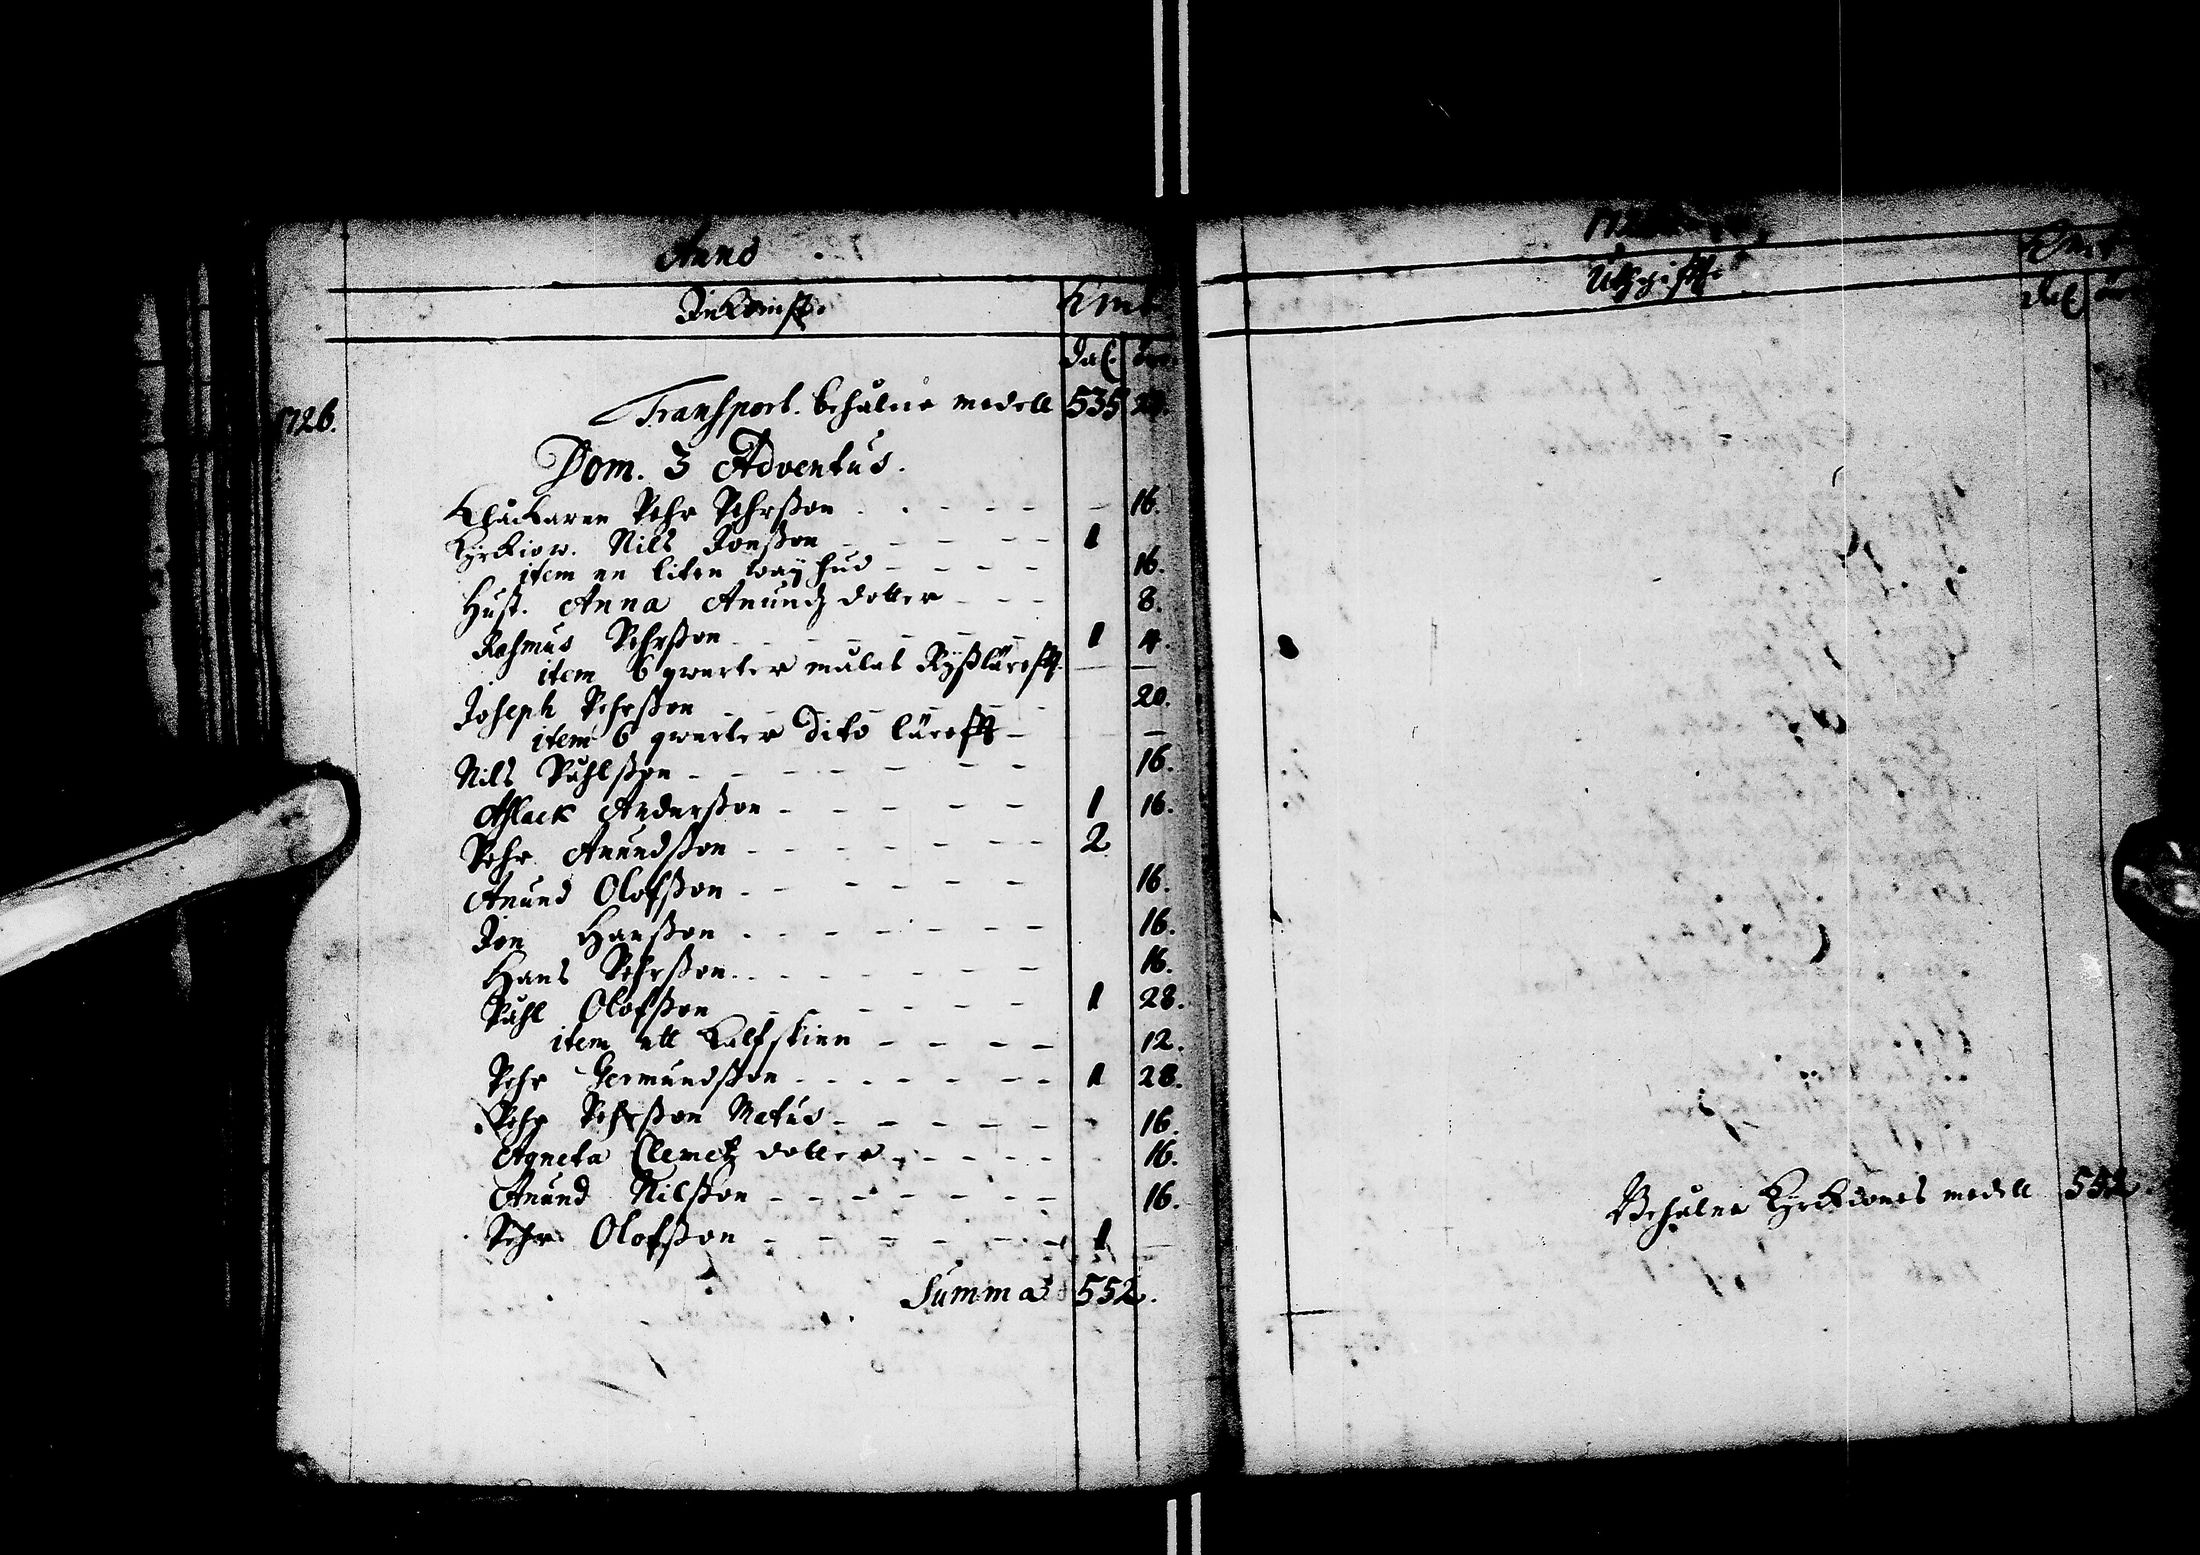 Anno
Inkomst. Kmt
dal. öre
1726. Transport. behålne medell 535
Dom. 3 Adventus.
Klåckaren Pehr Pehrßon - - - - 16.
Kyrkiow. Nils Jonßon - - - - 1
item en liten waÿhud - - - - 16.
Hust. Anna Anundz dotter - - - 8.
Rasmus Pehrßon - - - - 1 4.
item 6 qwarter målat Rÿßlärefft. — —
Joseph Pehrßon - - - - 20.
item 6 qwarter dito lärefft - —
Nils Påhlßon - - - - 16.
Aslack Anderßon - - - - 1 16.
Pehr Anundßon - - - - 2
Anund Olofßon - - - - 16.
Jon Hanßon - - - - 16.
Hans Pehrßon - - - - 16.
Påhl Olofßon - - - - 1 28.
item ett Kalfskinn - - - - 12.
Pehr Germundßon - - - - 1 28.
Pehr Pehrßon Matus - - - - 16.
Agneta Clemetz dotter - - - - 16.
Anund Nilßon - - - - 16.
Pehr Olofßon - - - - 1 —
Summa 552.
Utgifft
Kmt
dal öre
Behålne Kyrkiones medell 552